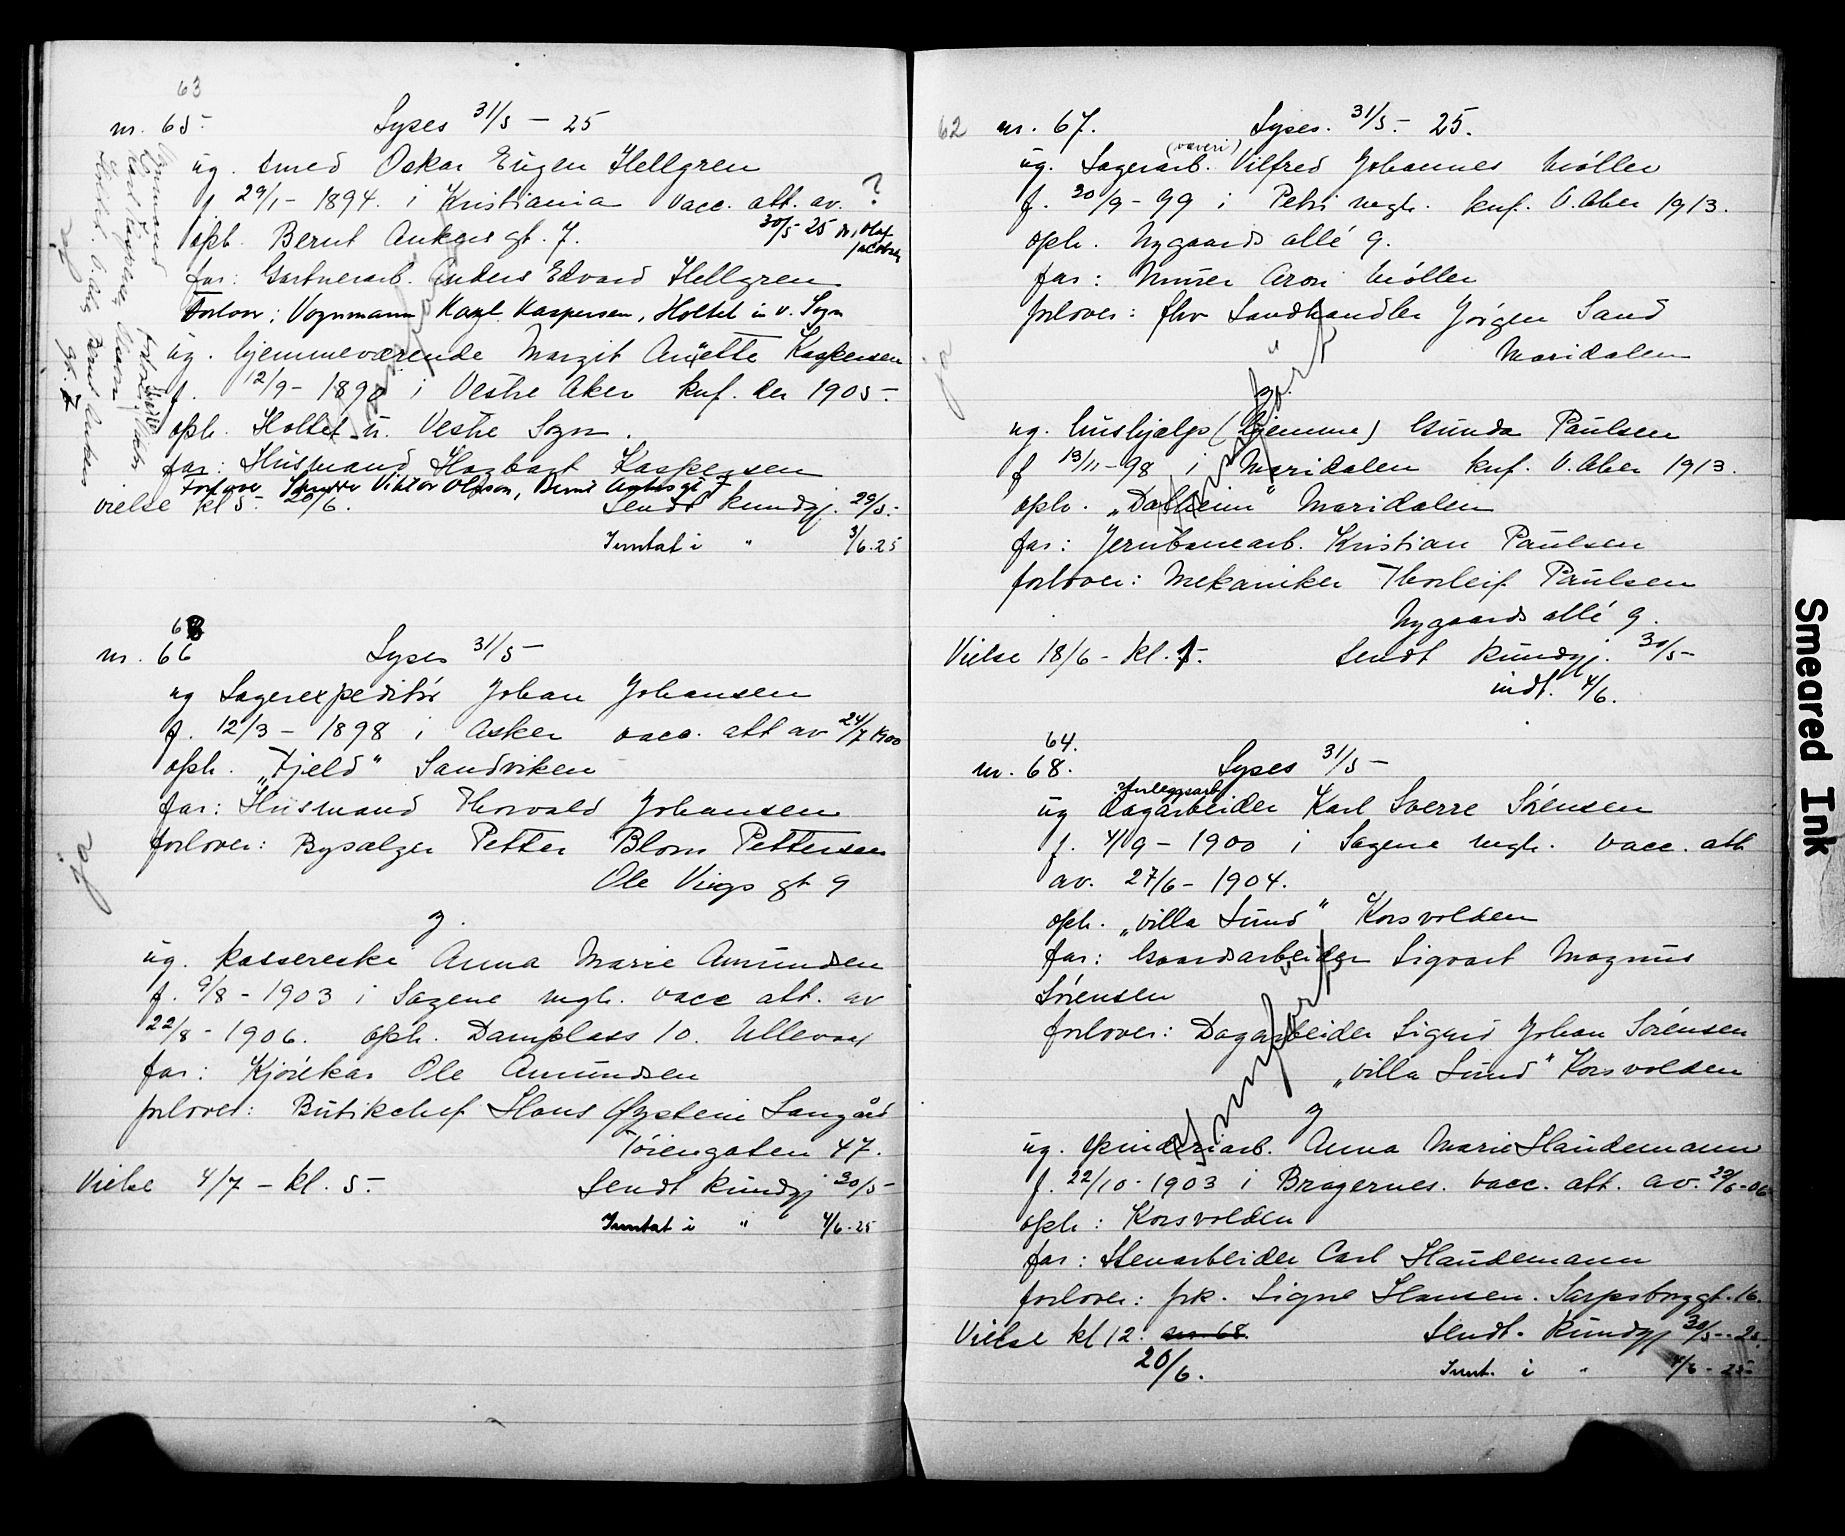 63
nr. 65. Lyses 31/5 - 25
ug. smed Oskar Eugen Hellgren
f 29/1 - 1894. i Kristiania vacc. att. av. ?
opl. Bernt Ankers gt. 7. 30/5 - 25 dr. Olaf
far: Gartnerarb. Anders Edvard Hellgren
Forlover: Vognmann Karl Kaspersen, Holtet i v. Sogn
ug. hjemmeværende Margit Anette Kaspersen
f. 12/9 - 1890 i Vestre Aker knf. der 1905 -
opl. Holtet u. Vestre Sogn.
far: Husmand Hagbart Kaspersen
Forlover Viktor Olsson, Bernt Ankersgt 7
vielse kl 5. 20/6. Sendt kundgj. 29/5.
Inntat i " 3/6.25
nr. 66 Lyses 31/5 -
ug Lagerexpeditör Johan Johansen
f. 12/3 - 1898 i Asker vacc. att av 24/7 1900
opl. „Fjeld" Sandviken
far: Husmand Thorvald Johansen
forlover: Bysælger Petter Blom Pettersen
Ole Vigs gt 9
ja
og.
ug. kassereske Anna Marie Amundsen
f. 9/8 - 1903 i Sagene mgh. vacc att. av
22/8 - 1906. opl. Damplass 10. Ullevaal
far: Kjörekar Ole Amundsen
forlover: Butikchef Hans Øystein Langård
Töiengaten 47.
Vielse 4/7 - kl. 5. Sendt kundgj 30/5 -
Inntat i " 4/6 - 25
62 nr. 67. Lyses. 31/5 - 25.
(væveri)
ug. Lagerarb. Vilfred Johannes Møller
f. 30/9 - 99 i Petri mgh. knf. V. Aker 1913.
opl. Nygaards allé 9.
far: Murer Aron Møller
forlover: fhv Landhandler Jörgen Sand
Maridalen
ja
ug. hushjælp (hjemme) Gunda Paulsen
f 13/11 - 98 i Maridalen knf. V. Aker 1913.
opl. „Dalheim" Maridalen
far: Jernbanearb. Kristian Paulsen
forlover: Mekaniker Thorleif Paulsen
Nygaards allé 9.
Vielse 18/6 - kl. 1. Sendt kundgj. 30/5 -
indt. 4/6.
64.
nr. 68. Lyses 31/5 -
Anleggsarb
ug dagarbeider Karl Sverre Sörensen
f. 4/9 - 1900 i Sagene mgh. vacc. att
av. 27/6 - 1904.
opl. „villa Sund" Korsvolden
far: Gaardsarbeider Sigvart Magnus
Sörensen
forlover: Dagarbeider Sigurd Johan Sörensen
„villa Sund" Korsvolden
og
ug. spinderiarb. Anna Marie Haudemann
f. 22/10 - 1903 i Bragernes. vacc. att. av. 29/6 - 06
opl: Korsvolden
far: Stenarbeider Carl Haudemann
forlover: frk. Signe Hansen. Sarpsborggt. 16.
Vielse kl 12. nr 68. Sendt. kundgj 30/5 - 25
20/6. Innt. i " 4/6 - 25
Smeared Ink